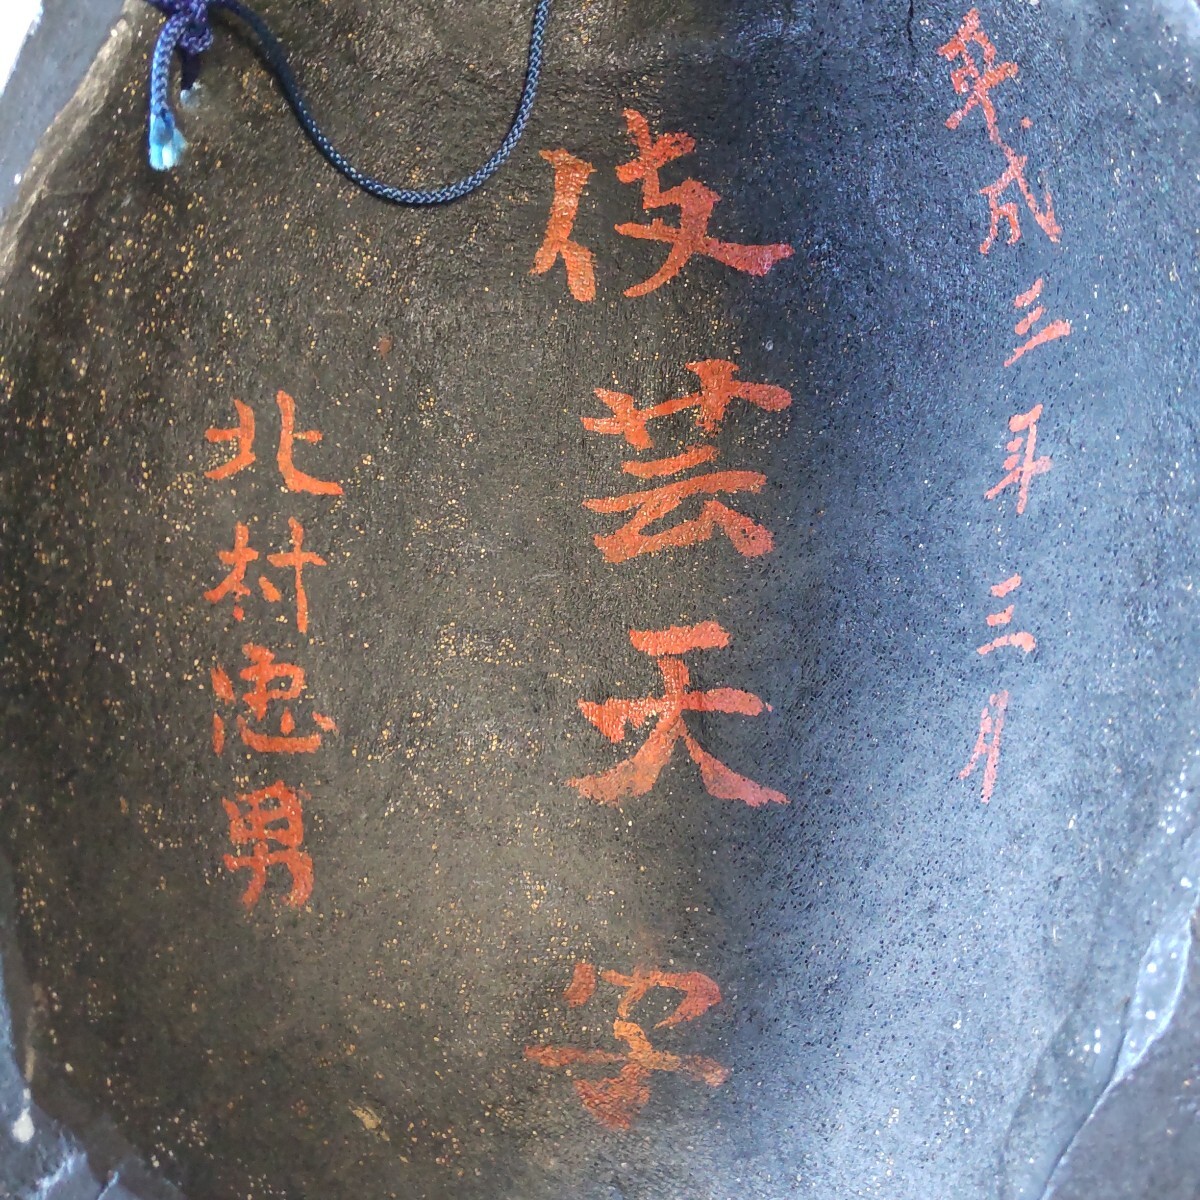 平成三年三月
伎芸天字
北村忠男